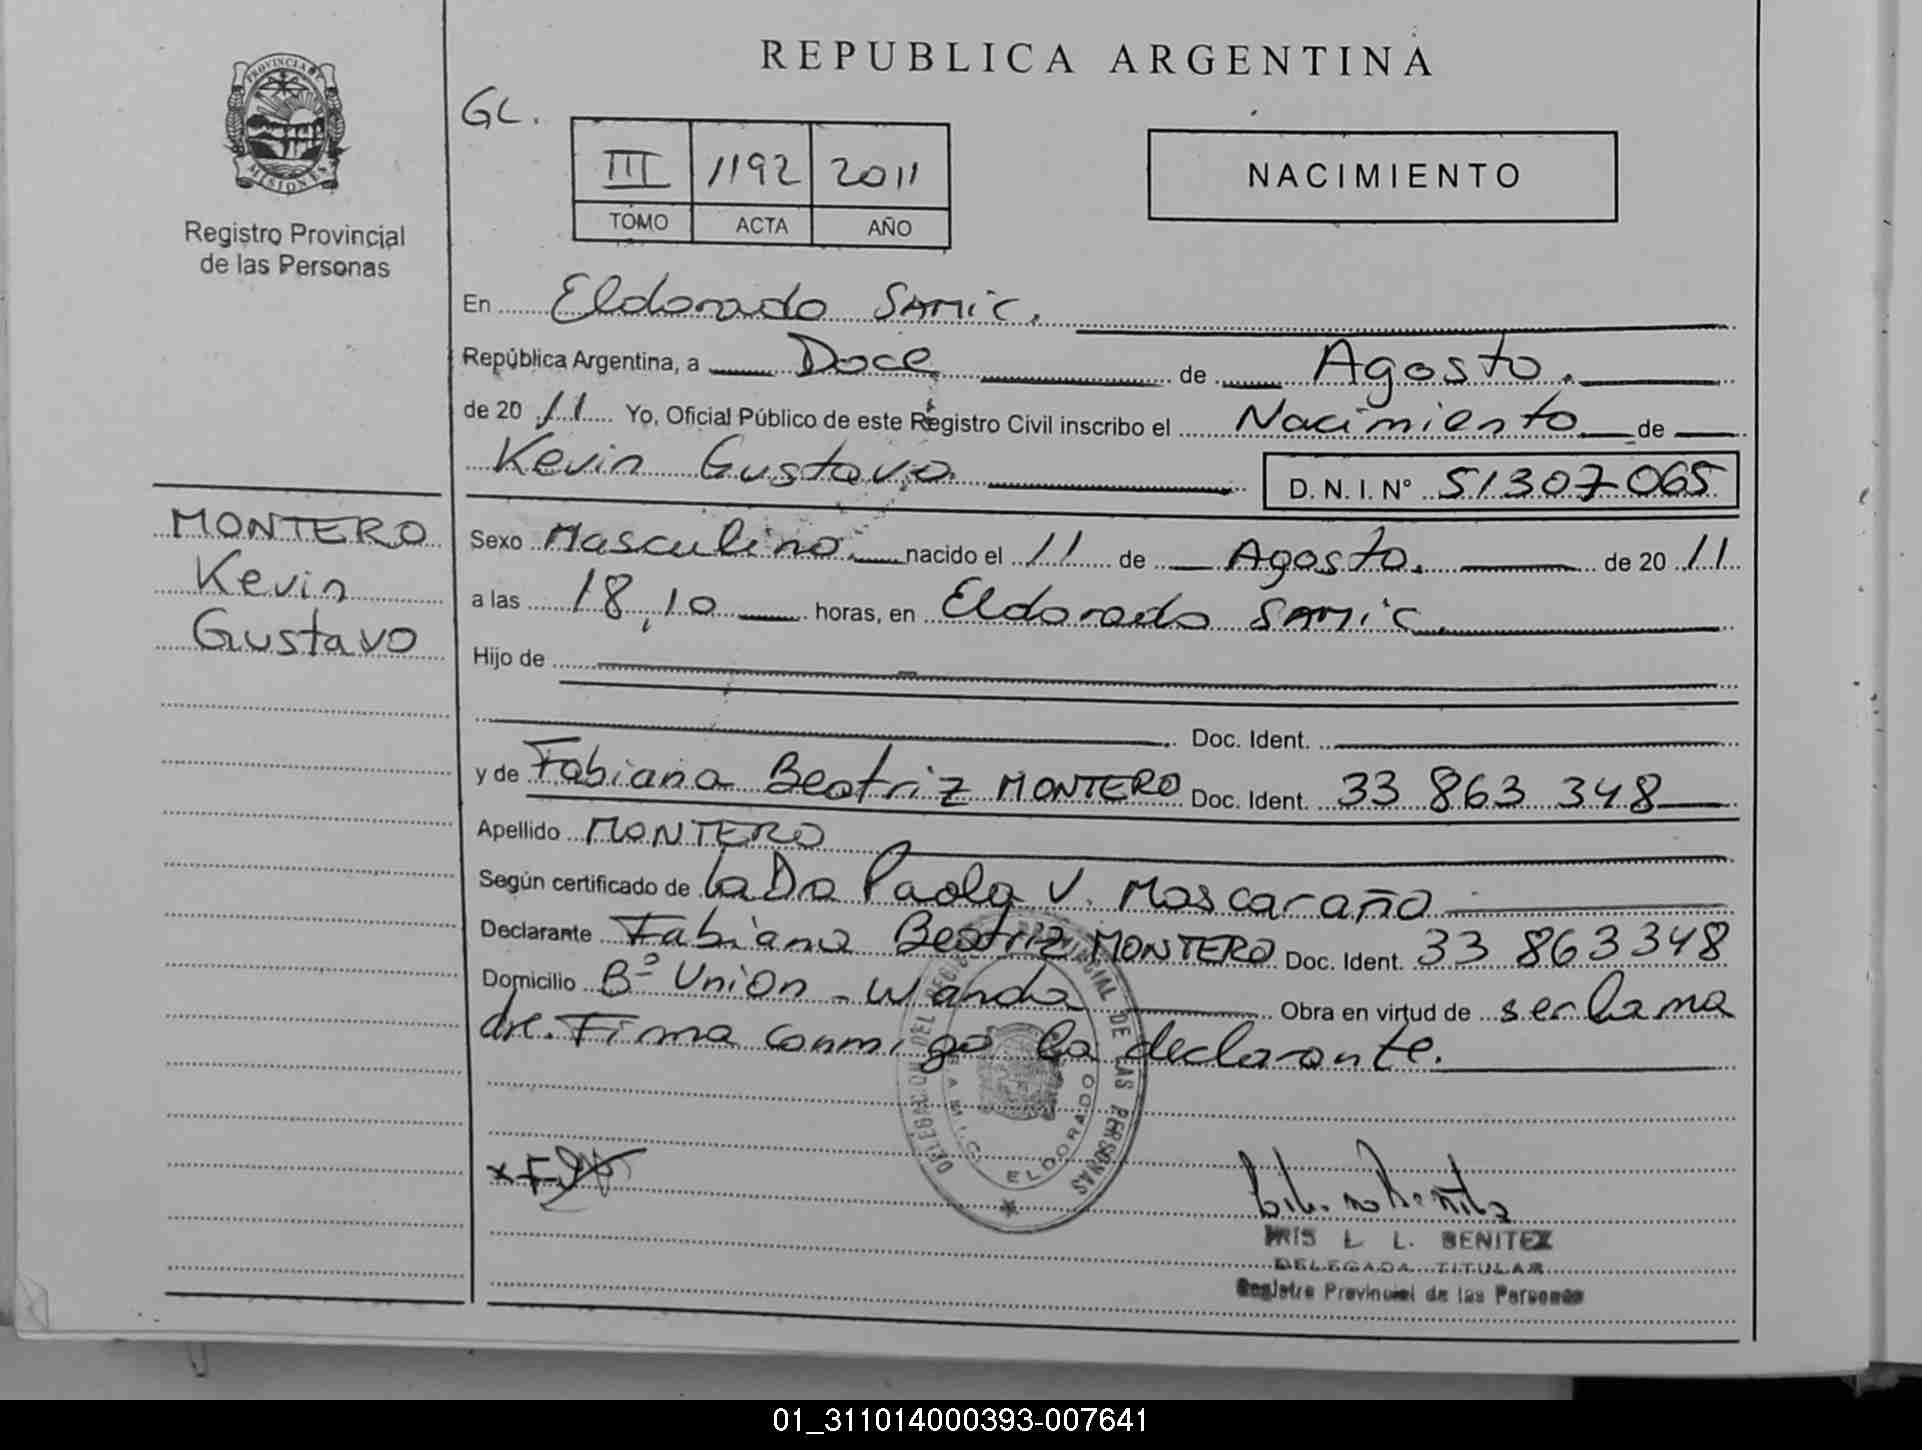 REPUBLICA ARGENTINA
PROVINCIA DE
MISIONES
Registro Provincial
de las Personas
GL.
III 1192 2011
TOMO ACTA AÑO
NACIMIENTO
En Eldorado SAMIC.
República Argentina, a Doce de Agosto.
de 2011 Yo, Oficial Público de este Registro Civil inscribo el Nacimiento de
Kevin Gustavo. D. N. I. N° 51307065
MONTERO
Kevin
Gustavo
Sexo Masculino. nacido el 11 de Agosto. de 2011
a las 18,10 horas, en Eldorado SAMIC.
Hijo de
Doc. Ident.
y de Fabiana Beatriz MONTERO Doc. Ident. 33 863 348
Apellido MONTERO
Según certificado de la Dra Paola V. Mascaraño
Declarante Fabiana Beatriz MONTERO Doc. Ident. 33 863348
Domicilio Bº Union - Wanda Obra en virtud de ser la ma
dre. Firma conmigo la declarante.
DELEGACION DEL REGISTRO PROVINCIAL DE LAS PERSONAS
S.A.M.I.C. ELDORADO
IRIS L. L. BENITEZ
DELEGADA TITULAR
Registro Provincial de las Personas
01_311014000393-007641